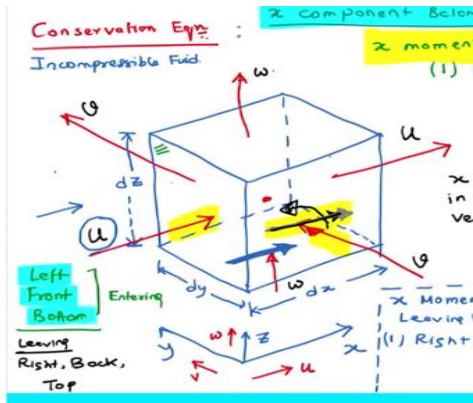 Conservation Eqn :
x component Below
x momen
(1)
Incompressible Fluid
w
v
u
dz
x
in
ve
u
v
w
dy
dx
Left
Front
Bottom
Entering
Leaving
Right, Back,
Top
y
w
z
x
v
u
x Momen
Leaving
(1) Right